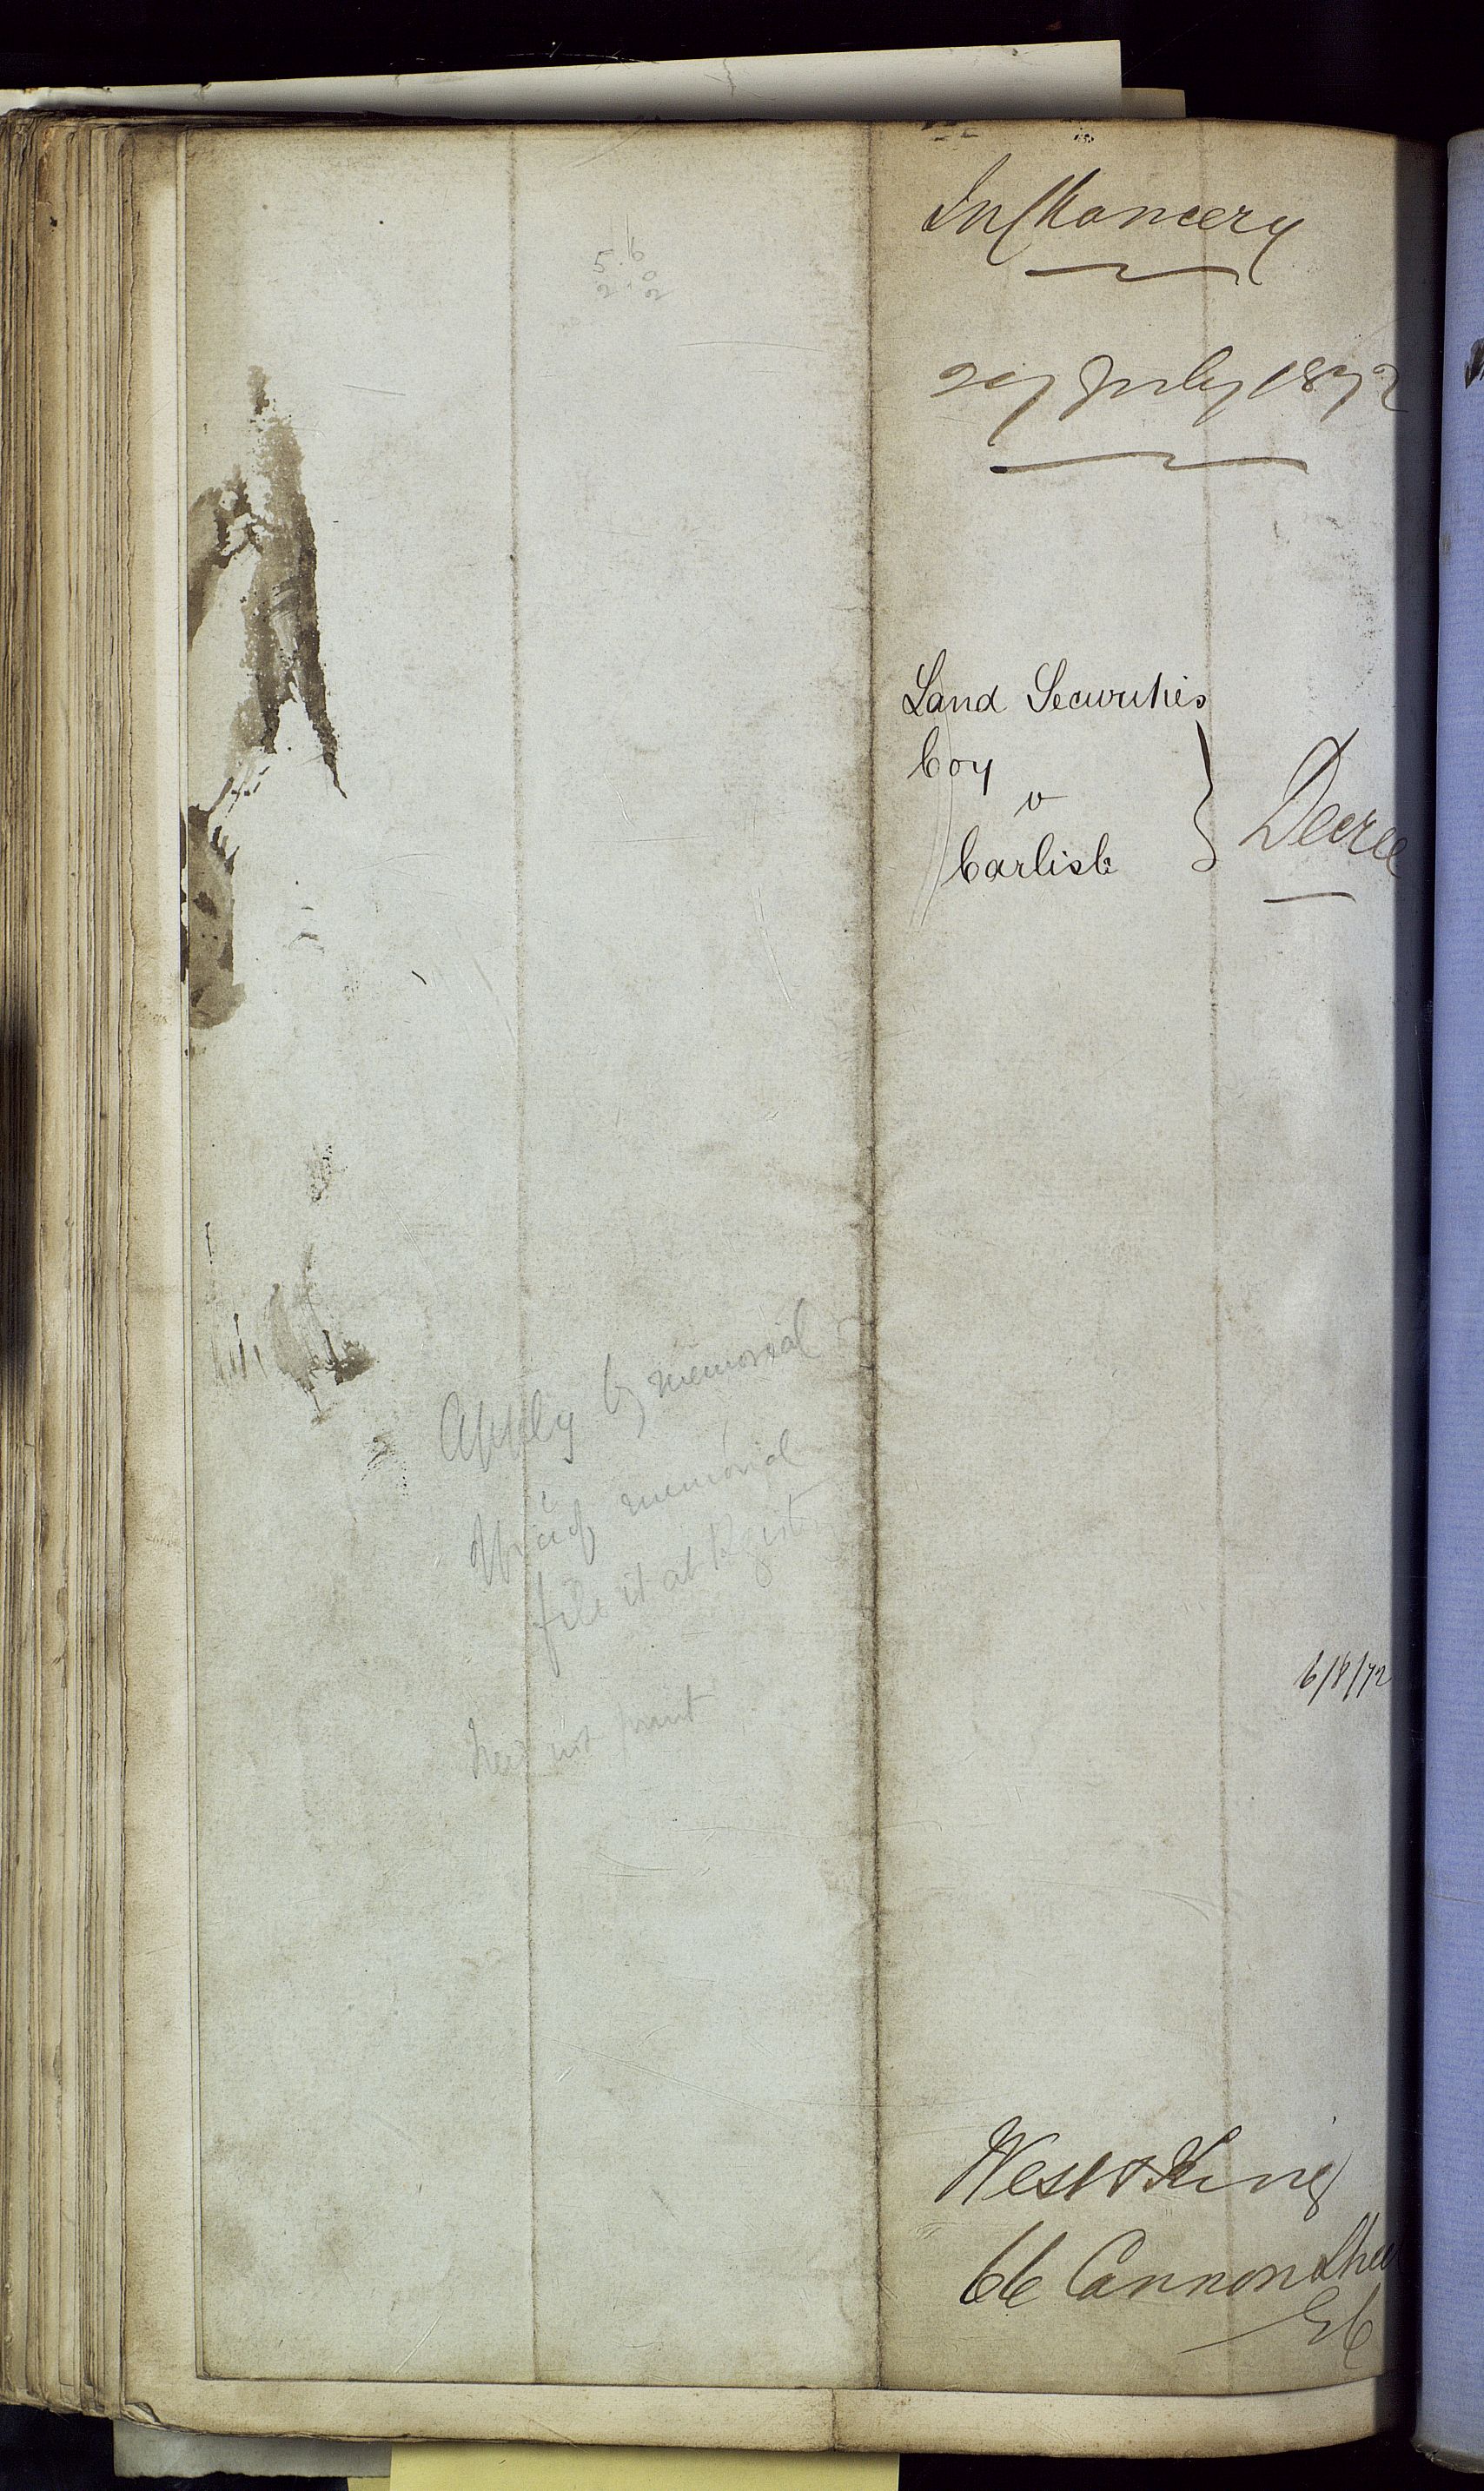 In Chancery
27 July 1872
Land Securities
Coy
v
Carlisle
Decree
6/8/72
West & King
66 Cannon Street
EC
5.6
2.
Apply by memorial
memorial
file it at Registry
not print